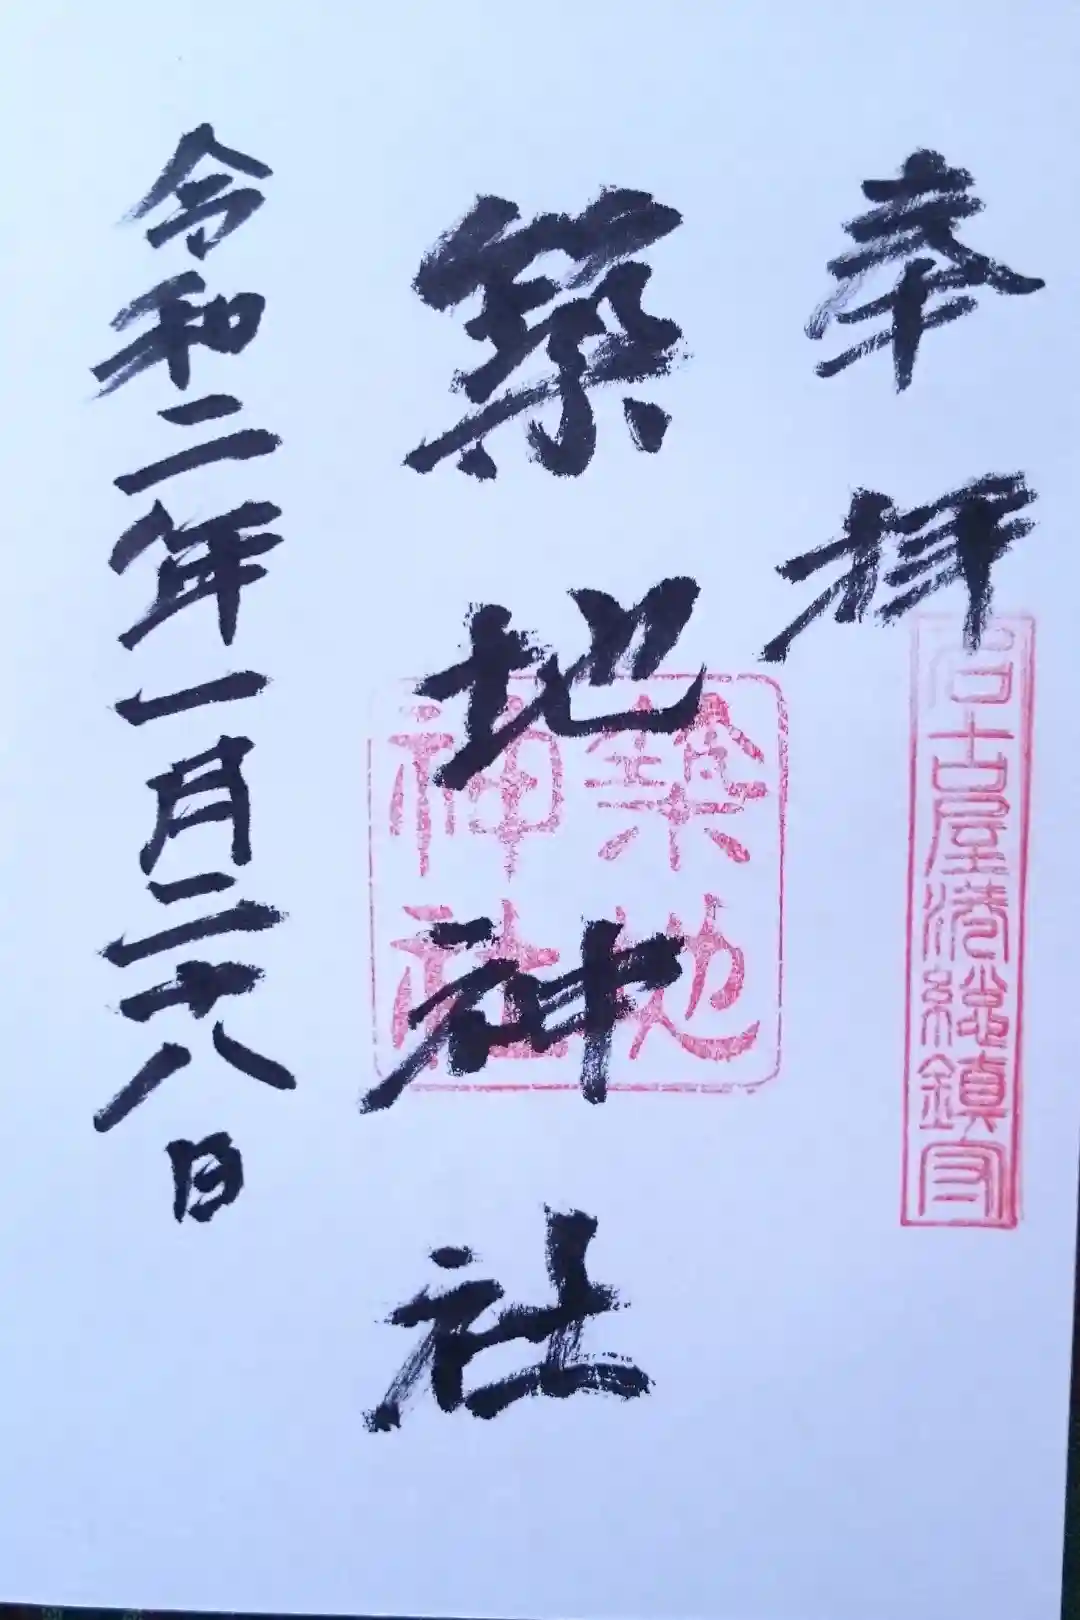 奉拝
名古屋港総鎮守
築地神社
築地
神社
令和二年一月二十八日